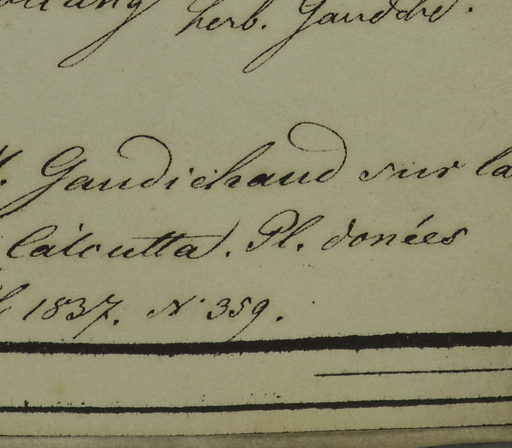 herb. Gaudich.
Gaudichaud sur la
Calcutta. Pl. donées
1837. N° 359.